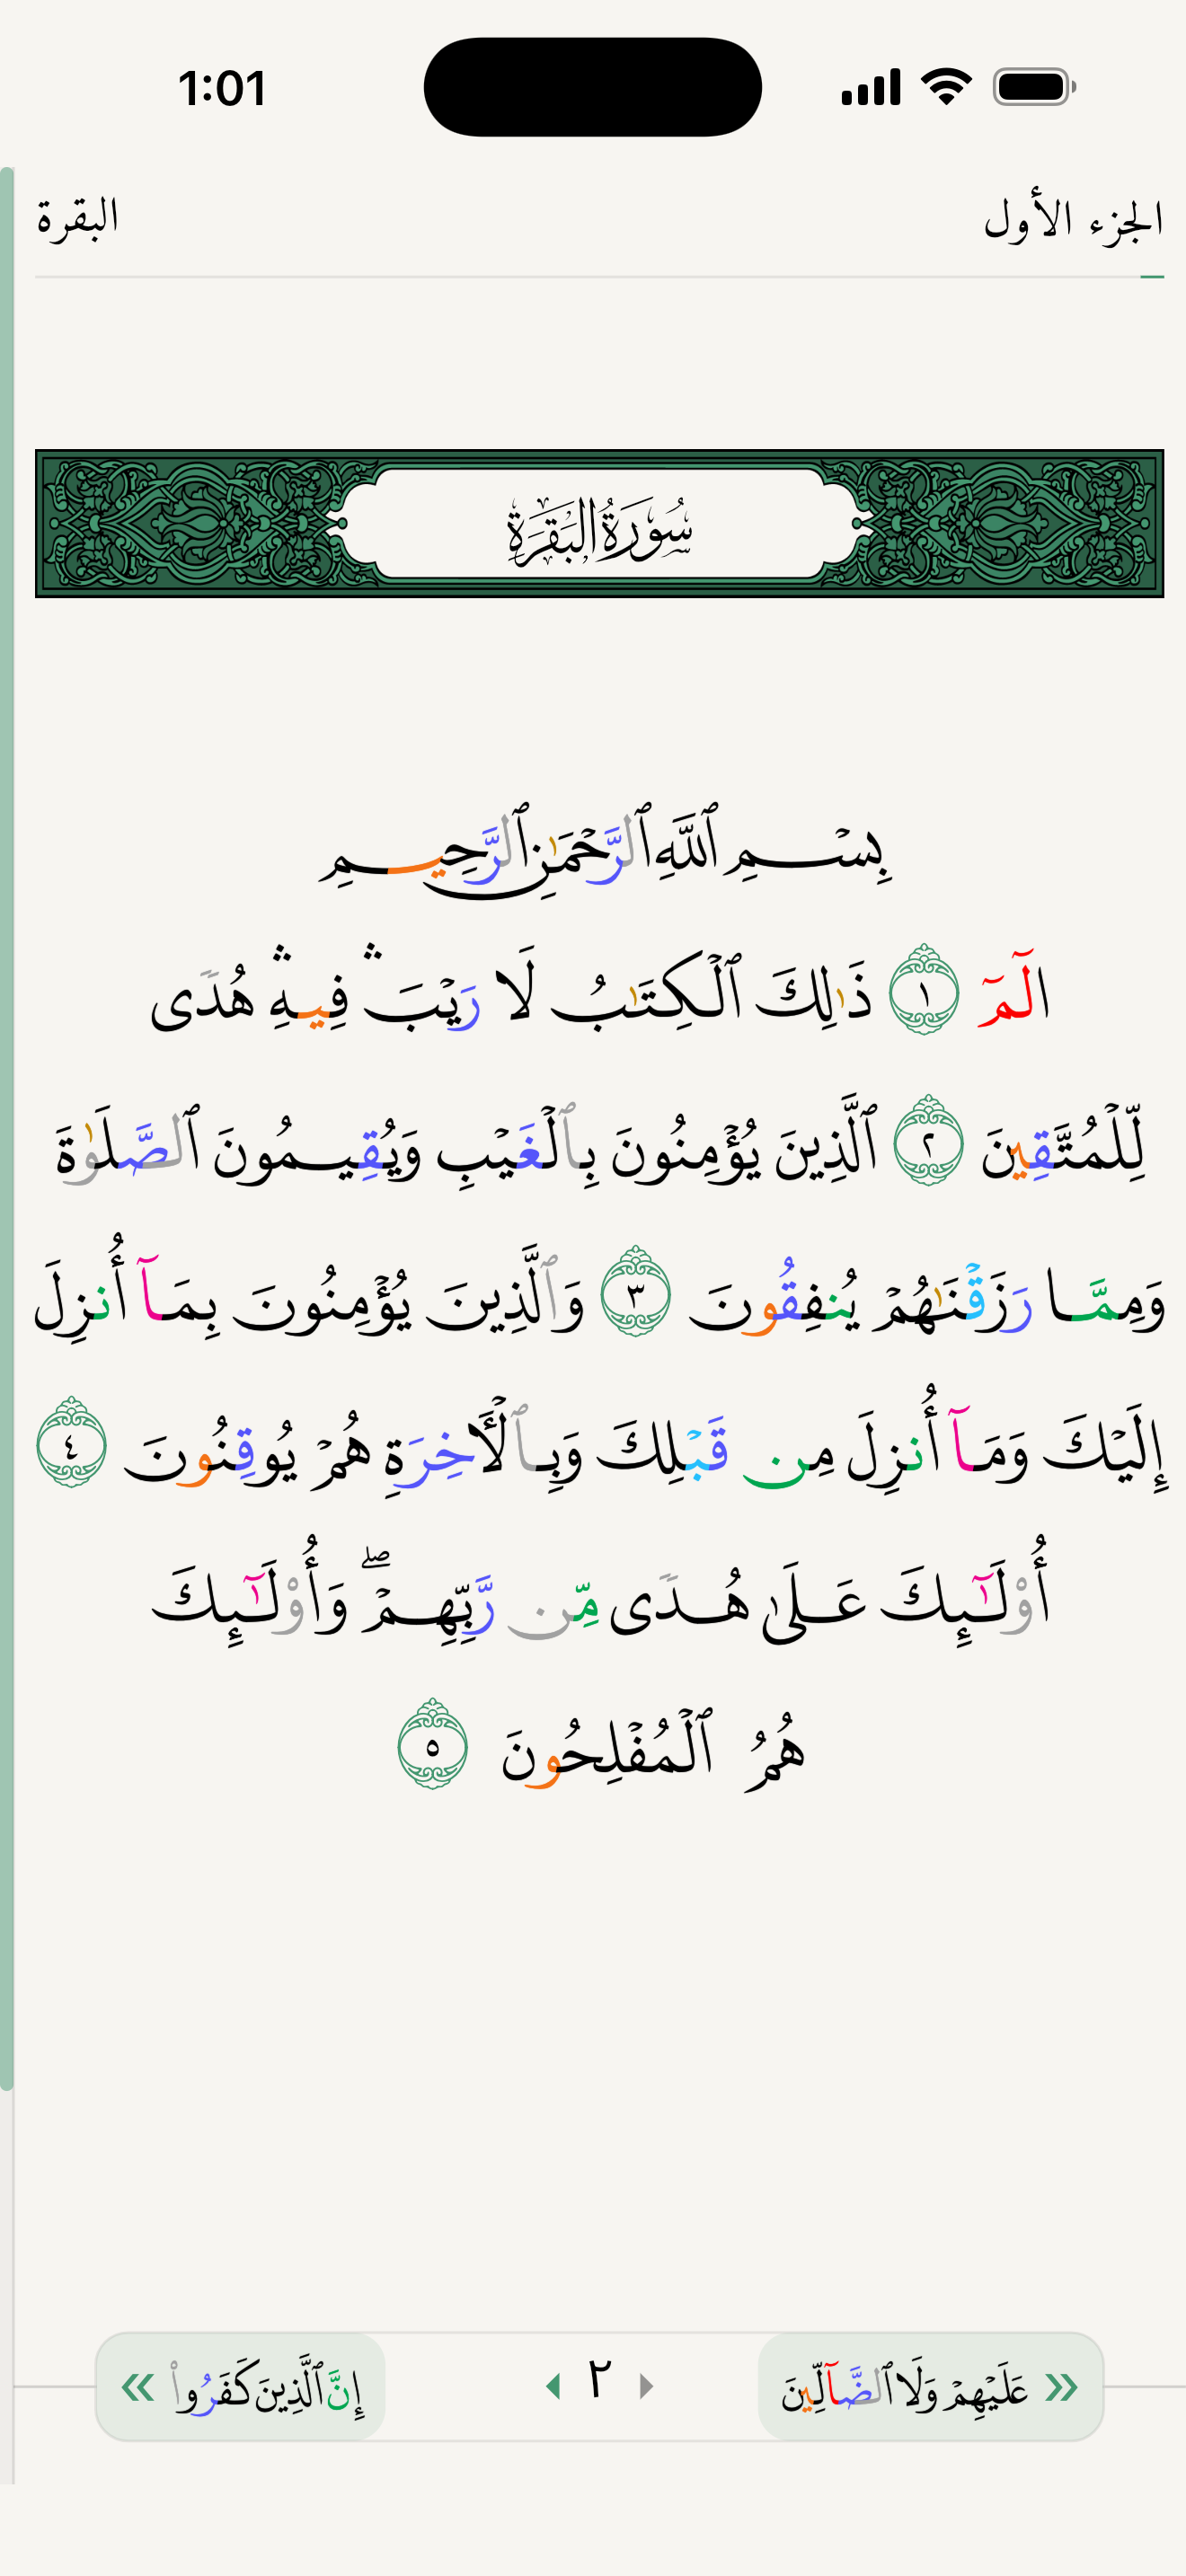 1:01
الجزء الأول
البقرة
سُورَةُ البَقَرَةِ
بِسْمِ ٱللَّهِ ٱلرَّحْمَٰنِ ٱلرَّحِيمِ
الٓمٓ ١ ذَٰلِكَ ٱلْكِتَٰبُ لَا رَيْبَ ۛ فِيهِ ۛ هُدًى
لِّلْمُتَّقِينَ ٢ ٱلَّذِينَ يُؤْمِنُونَ بِٱلْغَيْبِ وَيُقِيمُونَ ٱلصَّلَوٰةَ
وَمِمَّا رَزَقْنَٰهُمْ يُنفِقُونَ ٣ وَٱلَّذِينَ يُؤْمِنُونَ بِمَآ أُنزِلَ
إِلَيْكَ وَمَآ أُنزِلَ مِن قَبْلِكَ وَبِٱلْأَخِرَةِ هُمْ يُوقِنُونَ ٤
أُو۟لَٰٓئِكَ عَلَىٰ هُدًى مِّن رَّبِّهِمْ ۖ وَأُو۟لَٰٓئِكَ
هُمُ ٱلْمُفْلِحُونَ ٥
عَلَيْهِمْ وَلَا ٱلضَّآلِّينَ
٢
إِنَّ ٱلَّذِينَ كَفَرُوا۟